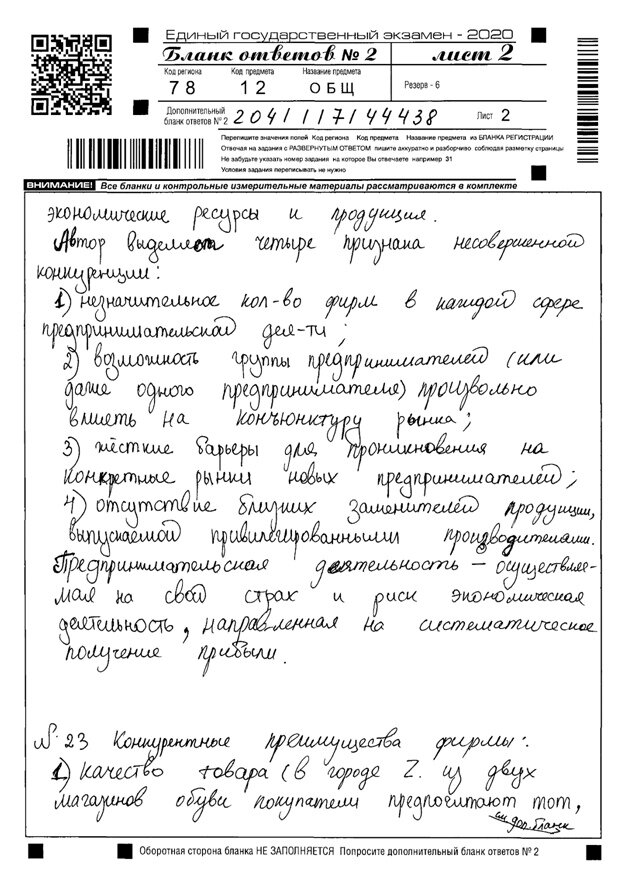 Единый государственный экзамен - 2020
Бланк ответов № 2 лист 2
Код региона Код предмета Название предмета
78 12 ОБЩ Резерв - 6
Дополнительный бланк ответов № 2 2041117144438 Лист 2
Перепишите значения полей Код региона Код предмета Название предмета из БЛАНКА РЕГИСТРАЦИИ
Отвечая на задания с РАЗВЕРНУТЫМ ОТВЕТОМ пишите аккуратно и разборчиво соблюдая разметку страницы
Не забудьте указать номер задания на которое Вы отвечаете например 31
Условия задания переписывать не нужно
ВНИМАНИЕ! Все бланки и контрольные измерительные материалы рассматриваются в комплекте
экономические ресурсы и продукция.
Автор выделяет четыре признака несовершенной
конкуренции:
1) незначительное кол-во фирм в каждой сфере
предпринимательской деят-ти;
2) возможность группы предпринимателей (или
даже одного предпринимателя) произвольно
влиять на конъюнктуру рынка;
3) жёсткие барьеры для проникновения на
конкретные рынки новых предпринимателей;
4) отсутствие близких заменителей продукции,
выпускаемой привилегированными производителями.
Предпринимательская деятельность – осуществляе-
мая на свой страх и риск экономическая
деятельность, направленная на систематическое
получение прибыли.
№ 23 Конкурентные преимущества фирмы:
1) качество товара (в городе Z. из двух
магазинов обуви покупатели предпочитают тот,
см доп. бланк
Оборотная сторона бланка НЕ ЗАПОЛНЯЕТСЯ Попросите дополнительный бланк ответов № 2